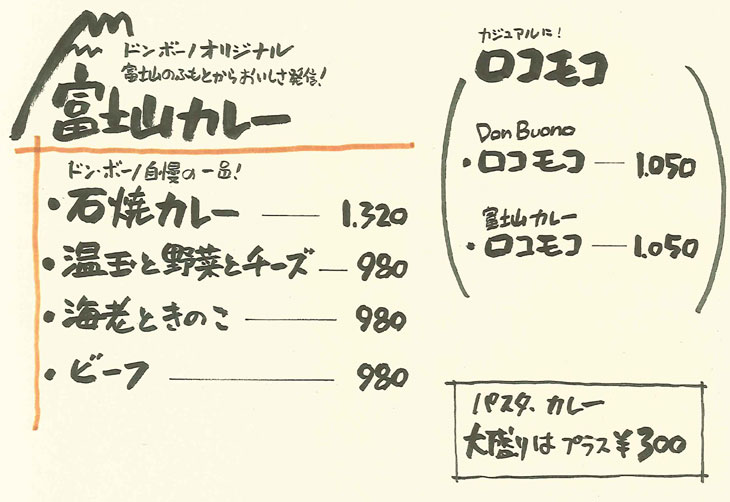 ドンボーノオリジナル
富士山のふもとからおいしさ発信!
富士山カレー
ドン・ボーノ自慢の一品!
・石焼カレー — 1.320
・温玉と野菜とチーズ — 980
・海老ときのこ — 980
・ビーフ — 980
カジュアルに!
ロコモコ
Don Buono
・ロコモコ — 1.050
富士山カレー
・ロコモコ — 1.050
パスタ、カレー
大盛りはプラス¥300